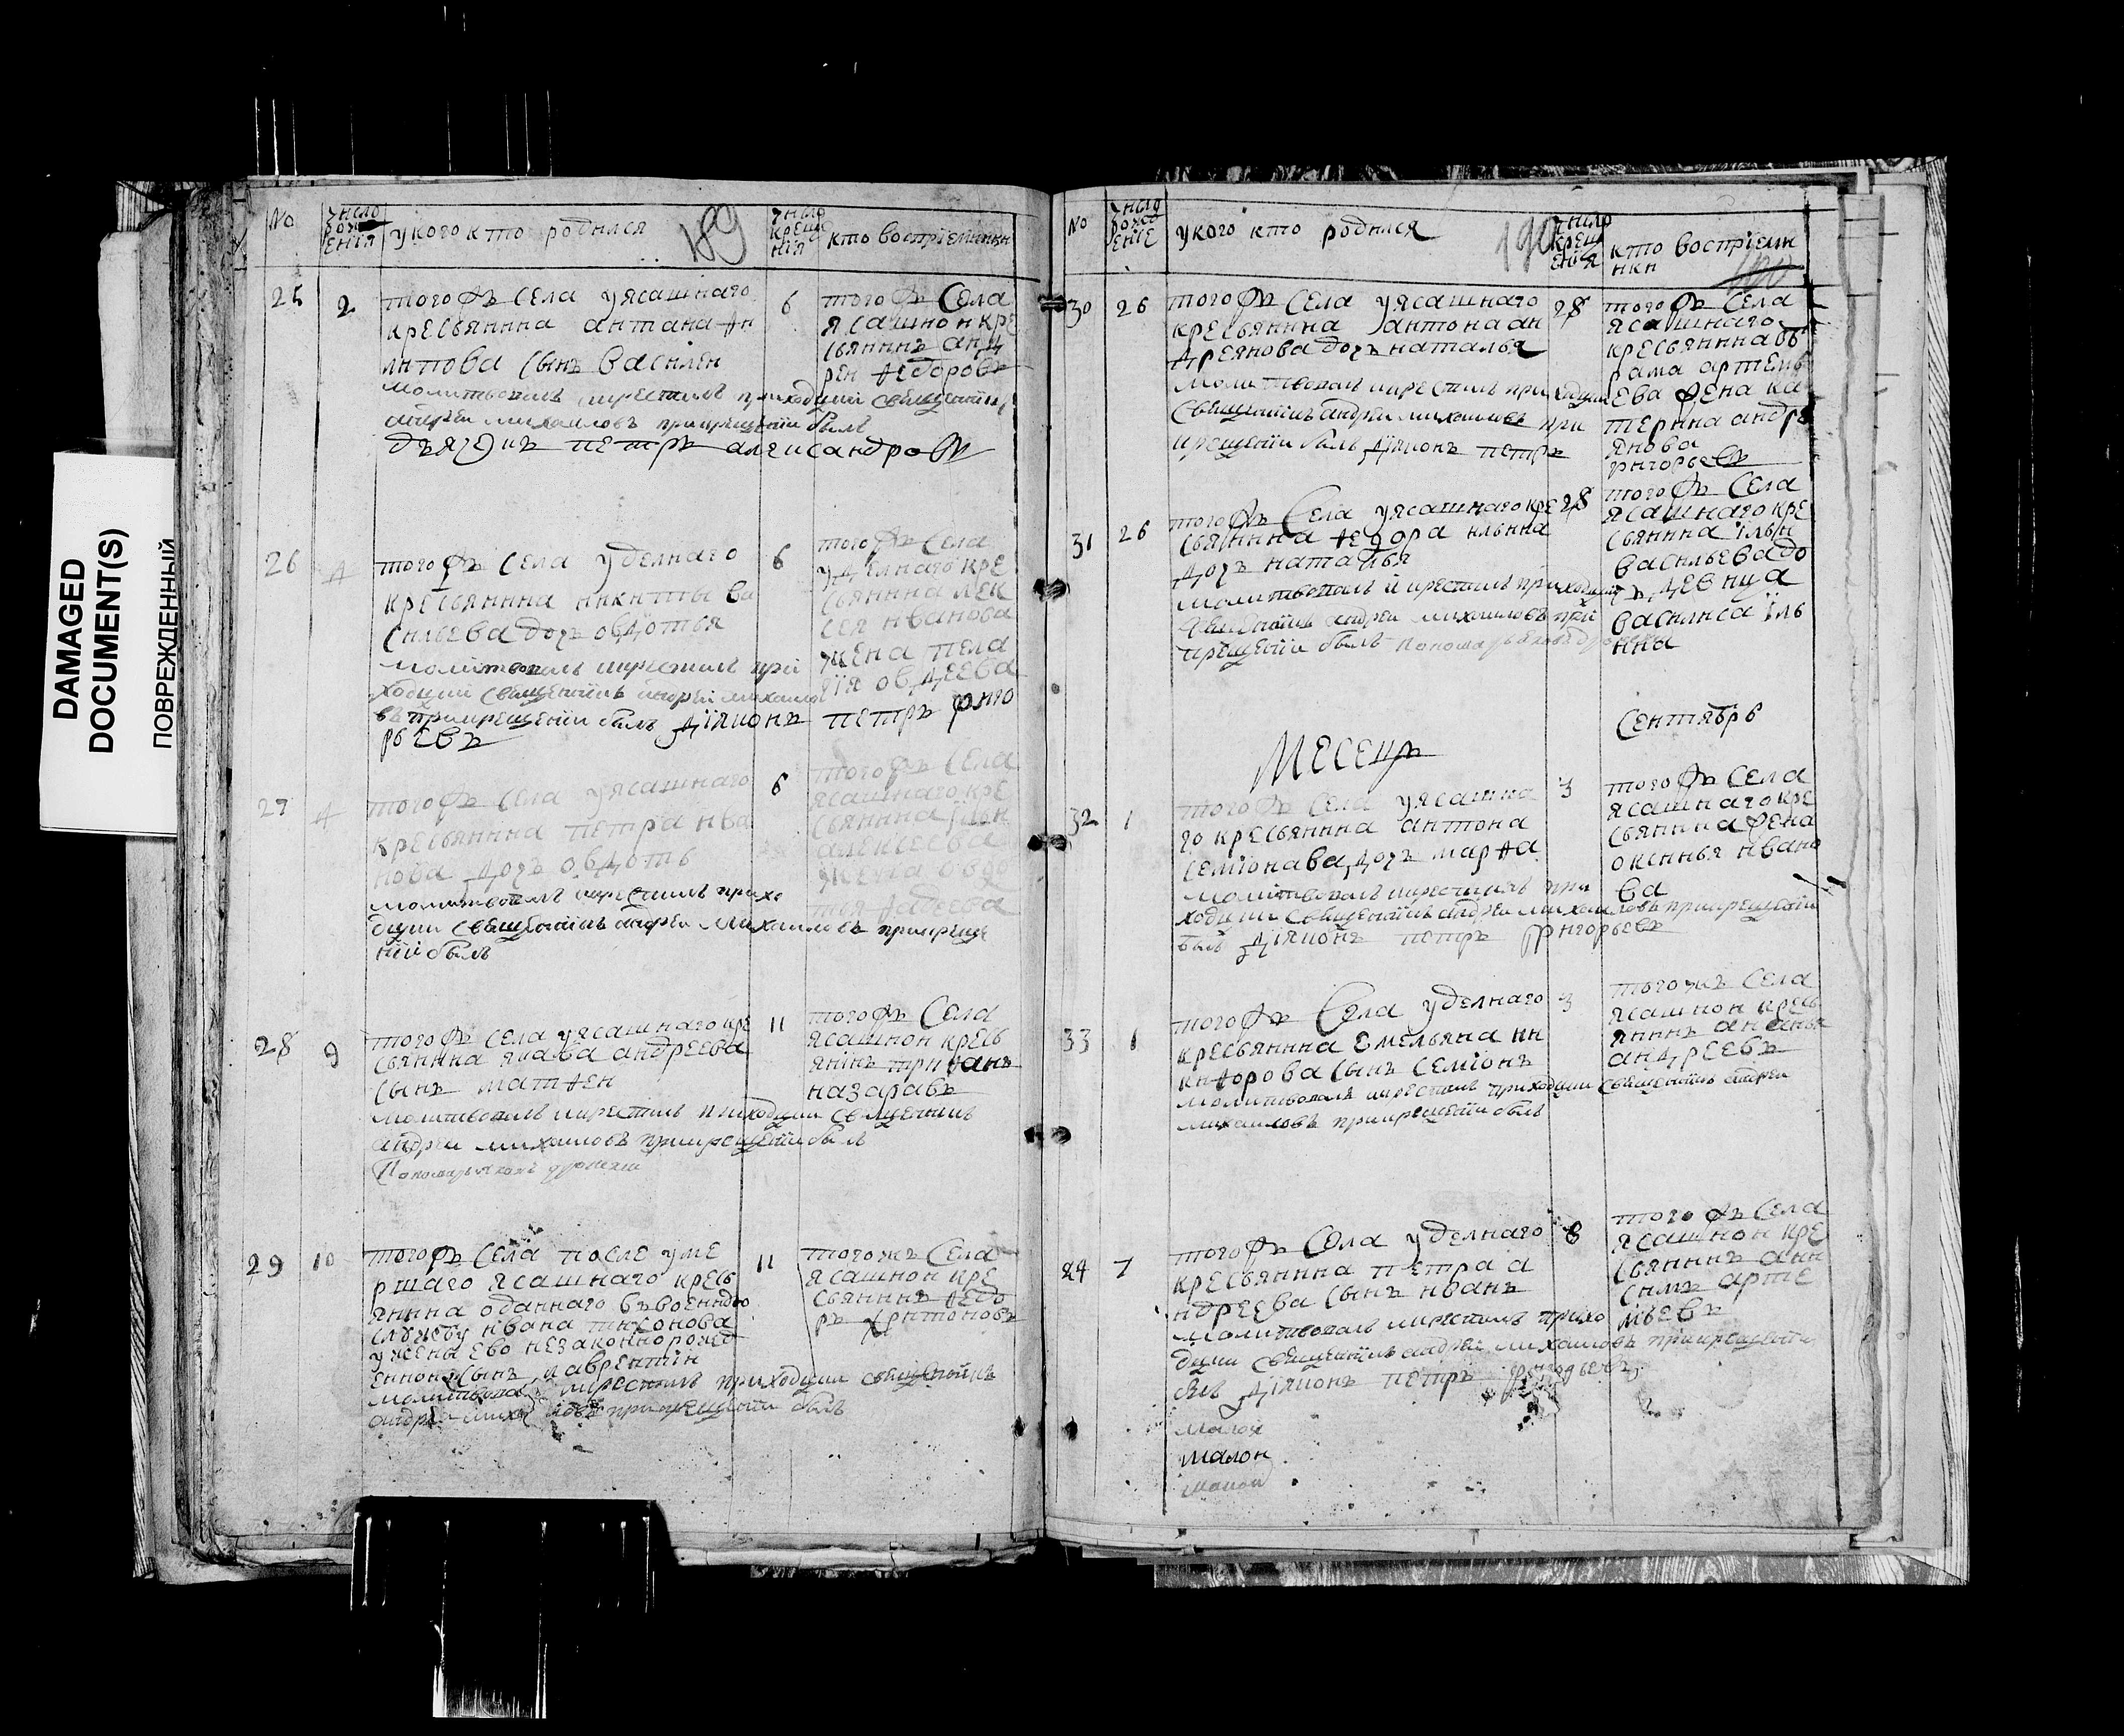 DAMAGED
DOCUMENT(S)
ПОВРЕЖДЕННЫЙ
No
число рожденiя
у кого кто родился
189
число крещенiя
кто воспрiемники
25
2
тогожъ села уясашнаго
кресьянина антана
антова сынъ василеи
молитвовалъ икрестилъ приходцки священникъ
андреи михаиловъ прикрещенiи былъ
дъячокъ петръ александровъ
6
тогожъ села
ясашнои кре
сьянинъ анд
реи ѳедоровъ
26
4
тогожъ села уделнаго
кресьянина никиты ва
сильева дочь овдотья
молитвовалъ икрестилъ при
ходцки священникъ андреи михаило
въ прикрещенiи былъ дiяконъ петръ григо
рьевъ
6
тогожъ села
уделнаго кре
сьянина алек
сея иванова
жена пела
гiя овдеева
27
4
тогожъ села уясашнаго
кресьянина петра ива
нова дочь овдоть
молитвовалъ икрестилъ прихо
дцки священникъ андреи михаиловъ прикреще
нiи былъ
6
тогожъ села
ясашнаго кре
сьянина
алексеева
жена овдо
тья
28
9
тогожъ села уясашнаго кре
сьянина якава андреева
сынъ матѳеи
молитвовалъ икрестилъ приходцки священникъ
андреи михаиловъ прикрещенiи былъ
11
тогожъ села
ясашнои кресь
янiнъ триѳанъ
назаравъ
29
10
тогожъ села после уме
ршаго ясашнаго кресь
янина оданнаго ввоенную
службу ивана тихонова
ужены ево незаконнорожд
еннои сынъ лаврентiи
молитвовалъ икрестилъ приходцки священникъ
андреи прикрещенiи былъ
11
тогожъ села
ясашнои кре
сьянинъ ѳедо
ръ харитоновъ
No
число рожденiе
у кого кто родился
190
число крещенiя
кто воспрiемники
30
26
тогожъ села уясашнаго
кресьянина антона ан
дреянова дочь наталья
молитвовалъ икрестилъ приходцки
священникъ андреи михаиловъ при
крещенiи былъ дiяконъ петръ
григорьевъ
28
тогожъ села
ясашнаго
кресьянина аб
рама артемь
ева жена ка
терина андре
янова
31
26
тогожъ села уясашнаго кре
сьянина ѳедора ильина
дочь наталья
молитвовалъ и крестилъ приходцки
священникъ андреи михаиловъ при
крещенiи былъ
28
тогожъ села
ясашнаго кре
сьянина iльи
васильева до
чь девица
василиса iль
ина
месецъ
сентябрь
32
1
тогожъ села уясашна
го кресьянина антона
семiонава дочь марѳа
молитвовалъ икрестилъ при
ходцки священникъ андреи михаиловъ прикрещенiи
былъ дiяконъ петръ григорьевъ
3
тогожъ села
ясашнаго кре
сьянина жена
оксинья ивано
ва
33
1
тогожъ села уделнаго
кресьянина емельяна ни
киѳорова сынъ семiонъ
молитвовалъ икрестилъ приходцки священникъ андреи
михаиловъ прикрещенiи былъ
3
тогожъ села
ясашнои кресь
янинъ ананья
андреевъ
24
7
тогожъ села уделнаго
кресьянина петра а
ндреева сынъ иванъ
молитвовалъ икрестилъ прихо
дцки священникъ андреи михаиловъ прикрещенiи
былъ дiяконъ петръ григорьевъ
8
тогожъ села
ясашнои кре
сьянинъ ани
симъ арте
мьевъ
малои
малои
малои